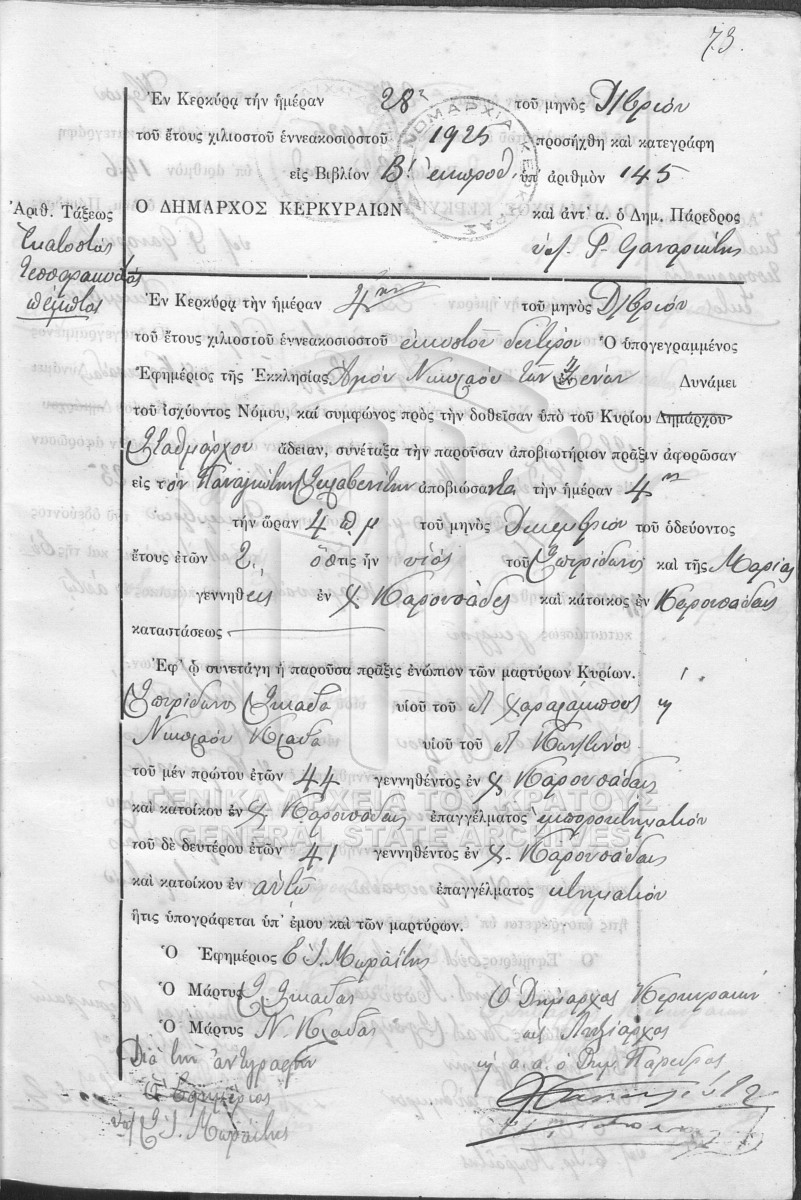 73.
Ἐν Κερκύρᾳ τήν ἡμέραν 28η τοῦ μηνὸς Δ/βρίου
τοῦ ἔτους χιλιοστοῦ ἐννεακοσιοστοῦ 1925 προσήχθη καὶ κατεγράφη
εἰς Βιβλίον Β! ἐκπροθ. ὑπ' ἀριθμὸν 145
Ἀριθ. Τάξεως
Ὁ ΔΗΜΑΡΧΟΣ ΚΕΡΚΥΡΑΙΩΝ καὶ ἀντ' α. ὁ Δημ. Πάρεδρος
ΝΟΜΑΡΧΙΑ ΚΕΡΚΥΡΑΣ
Ἑκατοστὸς
τεσσαρακοστὸς
πέμπτος
Ἐν Κερκύρᾳ τὴν ἡμέραν 4ην τοῦ μηνὸς Δ/βρίου
τοῦ ἔτους χιλιοστοῦ ἐννεακοσιοστοῦ εἰκοστοῦ δευτέρου Ὁ ὑπογεγραμμένος
Ἐφημέριος τῆς Ἐκκλησίας Ἁγίου Νικολάου τῶν Ξένων Δυνάμει
τοῦ ἰσχύοντος Νόμου, καί συμφώνος πρὸς τὴν δοθεῖσαν ὑπὸ τοῦ Κυρίου Δημάρχου
Σταθμάρχου ἄδειαν, συνέταξα τὴν παροῦσαν ἀποβιωτήριον πρᾶξιν ἀφορῶσαν
εἰς τὸν Παναγιώτην ἀποβιώσαντα τὴν ἡμέραν 4ην
τήν ὥραν 4 π.μ τοῦ μηνὸς Δεκεμβρίου τοῦ ὁδεύοντος
ἔτους ἐτῶν 2. ὅστις ἦν υἱὸς τοῦ Σπυρίδωνος καὶ τῆς Μαρίας
γεννηθεὶς ἐν Χ Καρουσάδες καὶ κάτοικος ἐν Καρουσάδαις
καταστάσεως
Ἐφ' ᾧ συνετάγη ἡ παροῦσα πρᾶξις ἐνώπιον τῶν μαρτύρων Κυρίων. 1.
Σπυρίδωνος Σκιαδᾶ υἱοῦ τοῦ π Χαραλάμπους
Νικολάου Κλαδᾶ υἱοῦ τοῦ π Κων/τίνου
τοῦ μέν πρώτου ἐτῶν 44 γεννηθέντος ἐν Χ Καρουσάδαις
καὶ κατοίκου ἐν Χ Καρουσάδαις ἐπαγγέλματος ἐμποροκτηματίου
ΓΕΝΙΚΑ ΑΡΧΕΙΑ ΤΟΥ ΚΡΑΤΟΥΣ
GENERAL STATE ARCHIVES
τοῦ δὲ δευτέρου ἐτῶν 41 γεννηθέντος ἐν Χ. Καρουσάδαις
καὶ κατοίκου ἐν αὐτῷ ἐπαγγέλματος κτηματίου
ἥτις ὑπογράφεται ὑπ' ἐμου καὶ τῶν μαρτύρων.
Ὁ Ἐφημέριος Σ. Ι. Μωραΐτης
Ὁ Μάρτυς Σ Σκιαδᾶς
Ὁ Δήμαρχος Κερκυραίων
Ὁ Μάρτυς Ν. Κλαδᾶς
ὡς Ληξίαρχος
Διὰ τὴν ἀντιγραφὴν
κ α.α. ὁ Δημ. Πάρεδρος
Ὁ Ἐφημέριος
Σ. Ι. Μωραΐτης